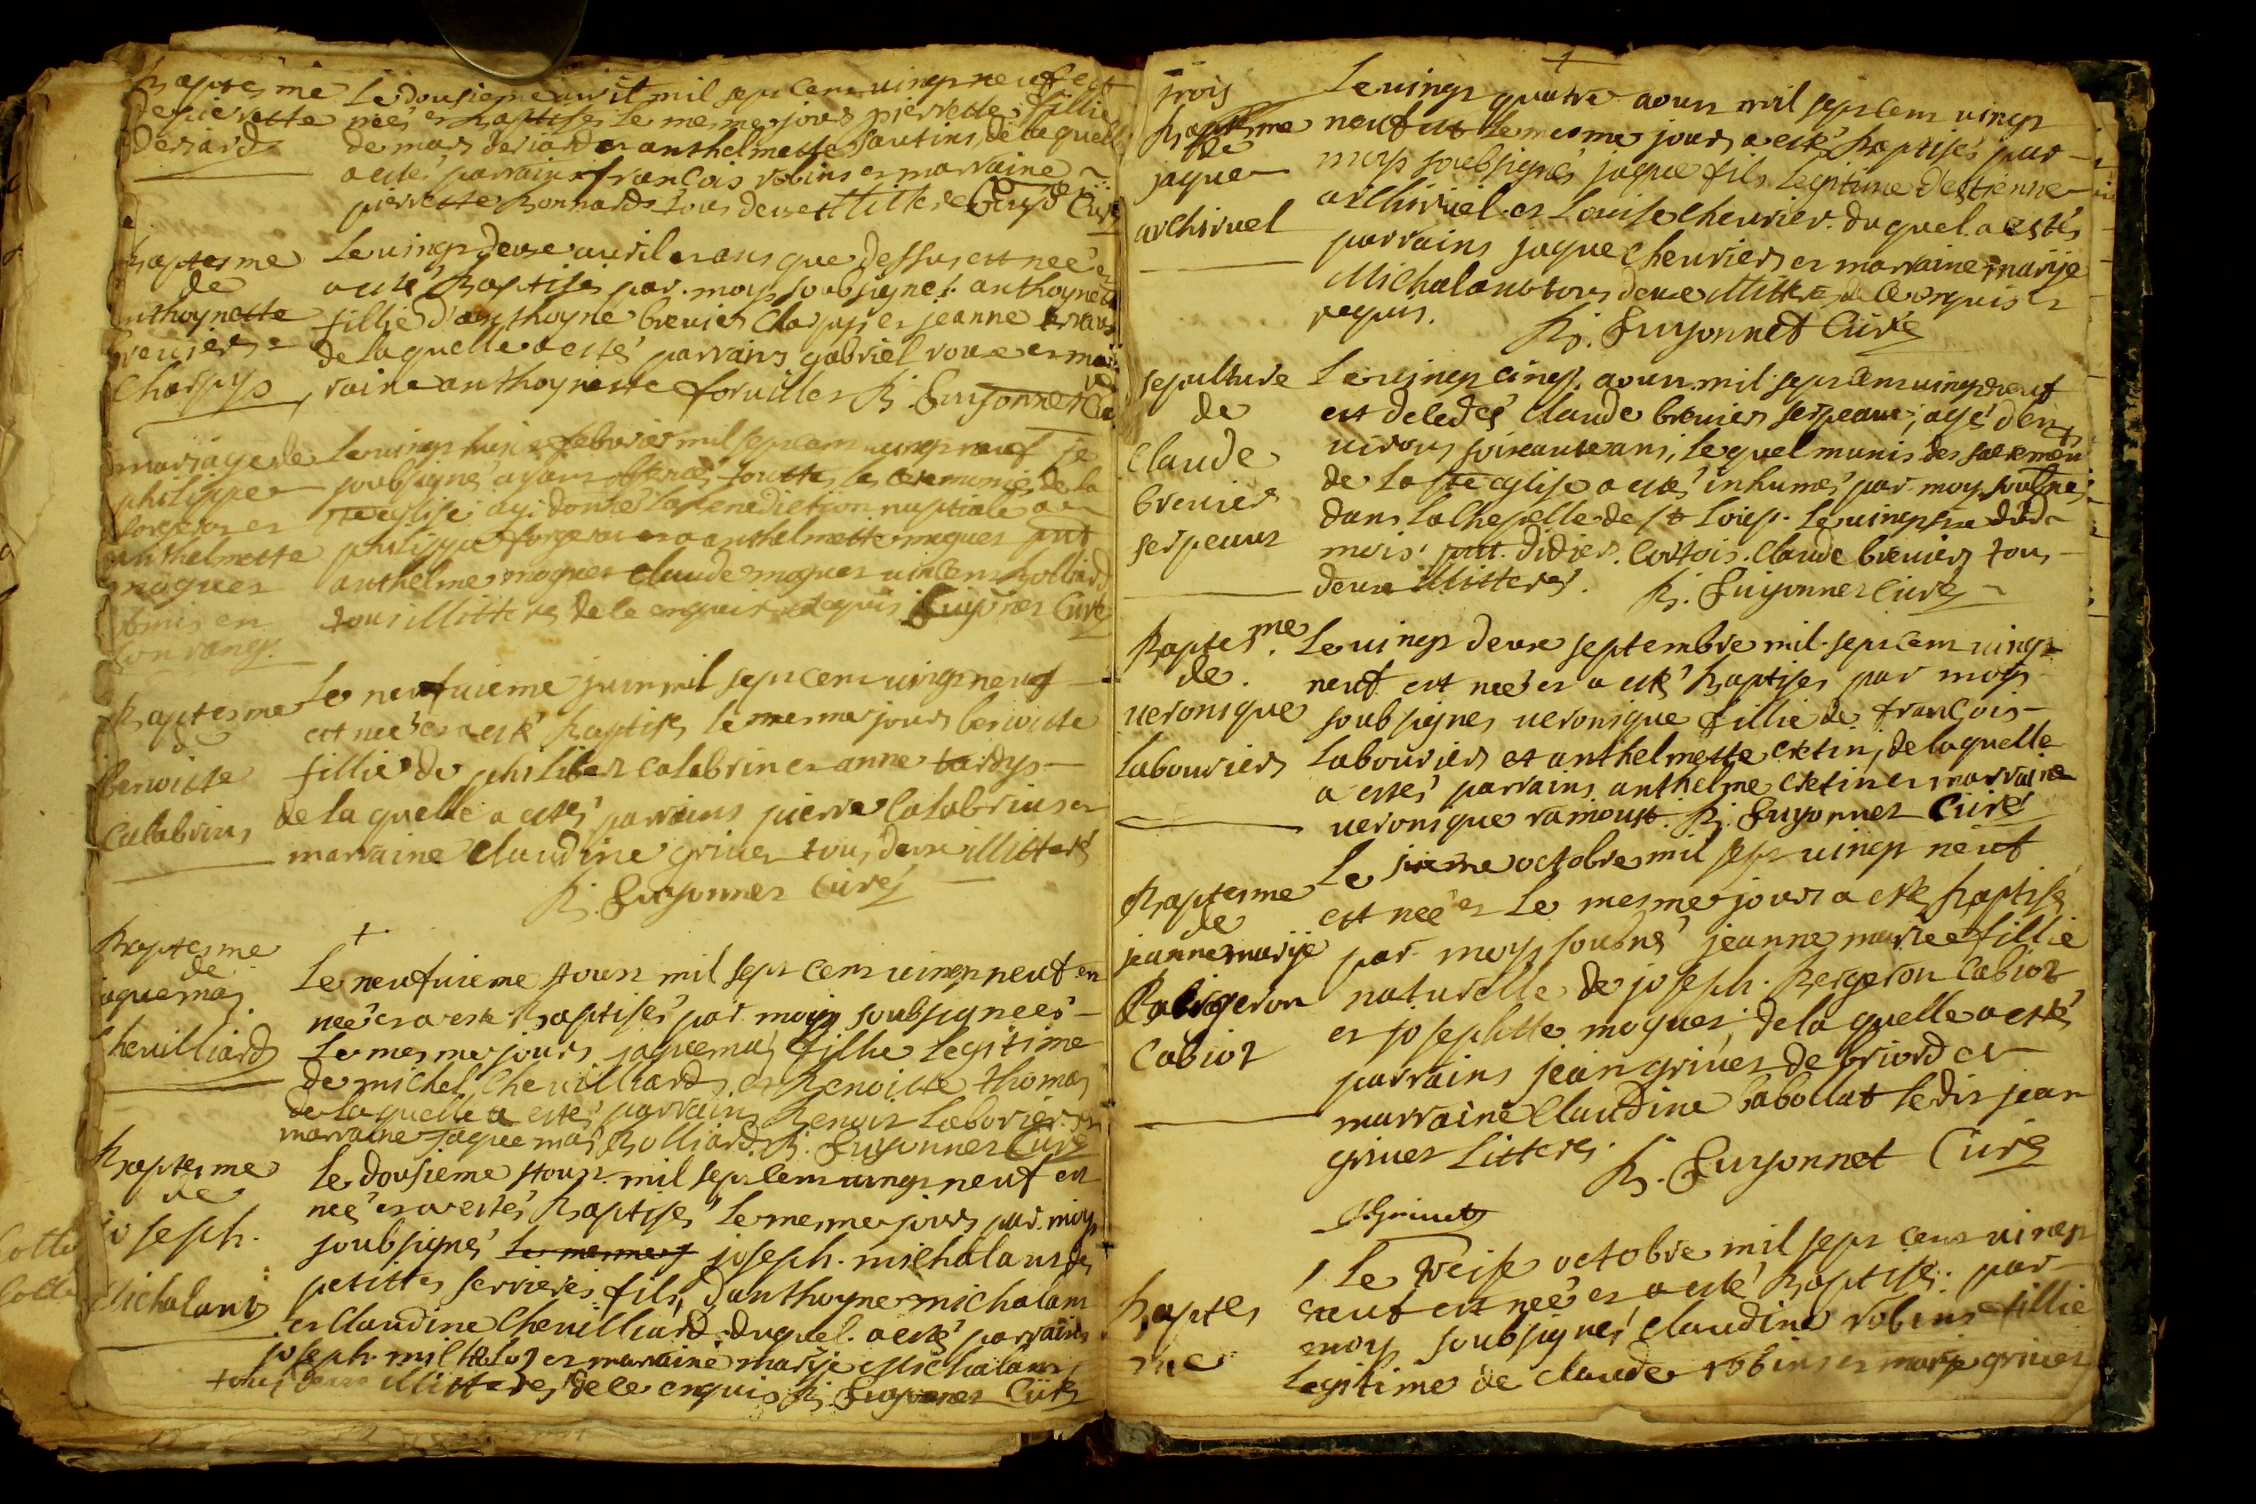 Baptesme
de pierrette
deriard
Le dousieme avril mil sept cent vingt neuf est
neé et baptisés le mesme jours pierrette fillie
de marc deriard et anthelmette sautins de laquelle
a estés parrains françois robins et marraine
pierrette bonnards tous deux illitteres Curé
Baptesme
de
anthoynette
brevier
Charpys
Le vingt deux avril et ans que dessus est neé et
a esté Baptisés par moys soubsigné anthoynette
fillie d'anthoyne brevier Charpys et jeanne
de laquelle a estés parrains gabriel roux et mar
raine anthoynette foruilles B. Guyonnet Cu.
mariage de
philippe
forgeron et
anthelmette
moguet
obmis en
son rang.
Le vingt huict febvrier mil sept cent vingt neuf je
soubsigné ayant observés toutte les ceremonies de la
ste eglise ay donné la benediction nuptiale a
philippe forgeron et a anthelmette moguet pnt
anthelme moguet Claude moguet vincent rolliard
tous illitteres de ce enquis et requis Guyonet Curé
Baptesme
de
benoitte
Calabrins
Le neufvieme juin mil sept cent vingt neuf
est neé et a esté baptisés le mesme jours benoitte
fillie de philibert calabrin et anne tardys
de laquelle a estés parrains pierre Calabrins et
marraine Claudine grivet tous deux illitterés
B. Guyonnet Curé
Baptesme
de
jaquemas
Chevilliards
Le neufvieme aoust mil sept cent vingt neuf est
neé et a esté Baptisés par moys soubsigneés
Le mesme jours jaquemas fillie legitime
de michel Chevilliards et Benoitte thomas
de laquelle a estés parrains Benoit Laborier et
marraine jaquemas Rolliards B. Guyonnet Curé
Baptesme
de
joseph
Michalans
Le dousieme aoust mil sept cent vingt neuf est
neé et a estés Baptisés Le mesme jours par moys
soubsignés Le mesme j joseph michalans des
petittes serrieres fils d'anthoyne michalans
et Claudine Chevilliard duquel a esté parrains
joseph michalans et marraine marye Michalans
tous deux illitteres de ce enquis B. Guyonnet Curé
trois
Baptesme
de
jaque
archirvel
Le vingt quatre aoust mil sept cent vingt
neuf et Le mesme jours a esté Baptisés par
moys soubsignés jaque fils Legitime d'estienne
archirviel et Louise Cheurier duquel a estés
parrains jaque Cheuriers et marraine marye
Michalans tous deux illitteres de Ce enquis et
requis.
B. Guyonnet Curé
sepulture
de
Claude
brevier
serpeaux
Le vingt cinq aoust mil sept cent vingt neuf
est decedés Claude brevier serpeaux, agé d'en
virons soixante ans, Lequel munis des sacremens
de La ste eglise a estés inhumés par moy soubnés
dans La Chapelle de st Loup Le vingt six dud
mois pnt didier Cortois Claude brevier tous
deux illitteres. B. Guyonnet Curé
Baptesme
de
veronique
Labouriers
Le vingt deux septembre mil sept cent vingt
neuf est neé et a esté Baptisés par moys
soubsignes veronique fillie de françois
Labouriers et anthelmette cretin, de laquelle
a estés parrains anthelme cretin et marraine
veronique ramoust B. Guyonnet Curé
Baptesme
de
jeanne marye
Bergeron
Cabiot
Le sixieme octobre mil sept vingt neuf
est neé et Le mesme jours a esté baptisé
par moys soubné jeanne marie fillie
naturelle de joseph Bergeron Cabiot
et josephtte moguet de laquelle a estés
parrains jean grivet de briord et
marraine Claudine babollat Ledit jean
grivet Litteré B. Guyonnet Curé
JGrivet
Baptes
me
Le treise octobre mil sept cent vingt
neuf est neé et a esté Baptisés par
moys soubsignés Claudine robins fillie
Legitime de claude robins et marye grivet